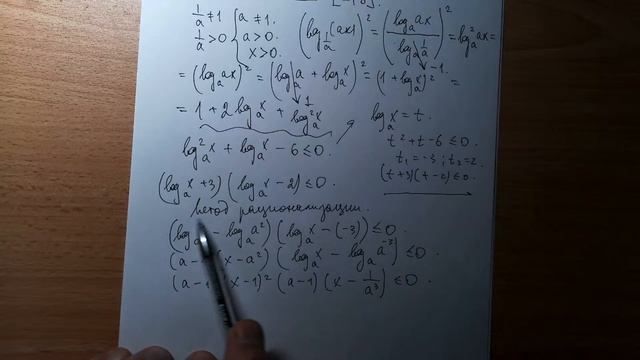 1/a ≠ 1 { a ≠ 1.
1/a > 0 { a > 0.
x > 0.
(log_{1/a}(ax))² = (log_a ax / log_a 1/a)² = log_a² ax =
= (log_a ax)² = (log_a a + log_a x)² = (1 + log_a x)² =
= 1 + 2 log_a x + log_a² x
log_a² x + log_a x - 6 ≤ 0
(log_a x + 3)(log_a x - 2) ≤ 0.
log_a x = t.
t² + t - 6 ≤ 0.
t₁ = -3; t₂ = 2.
(t+3)(t-2) ≤ 0.
метод рационализации.
- log_a a²)(log_a x - (-3)) ≤ 0
(a - x - a²)(log_a x - log_a a⁻³) ≤ 0.
(a - 1 x - 1)² (a - 1)(x - 1/a³) ≤ 0.